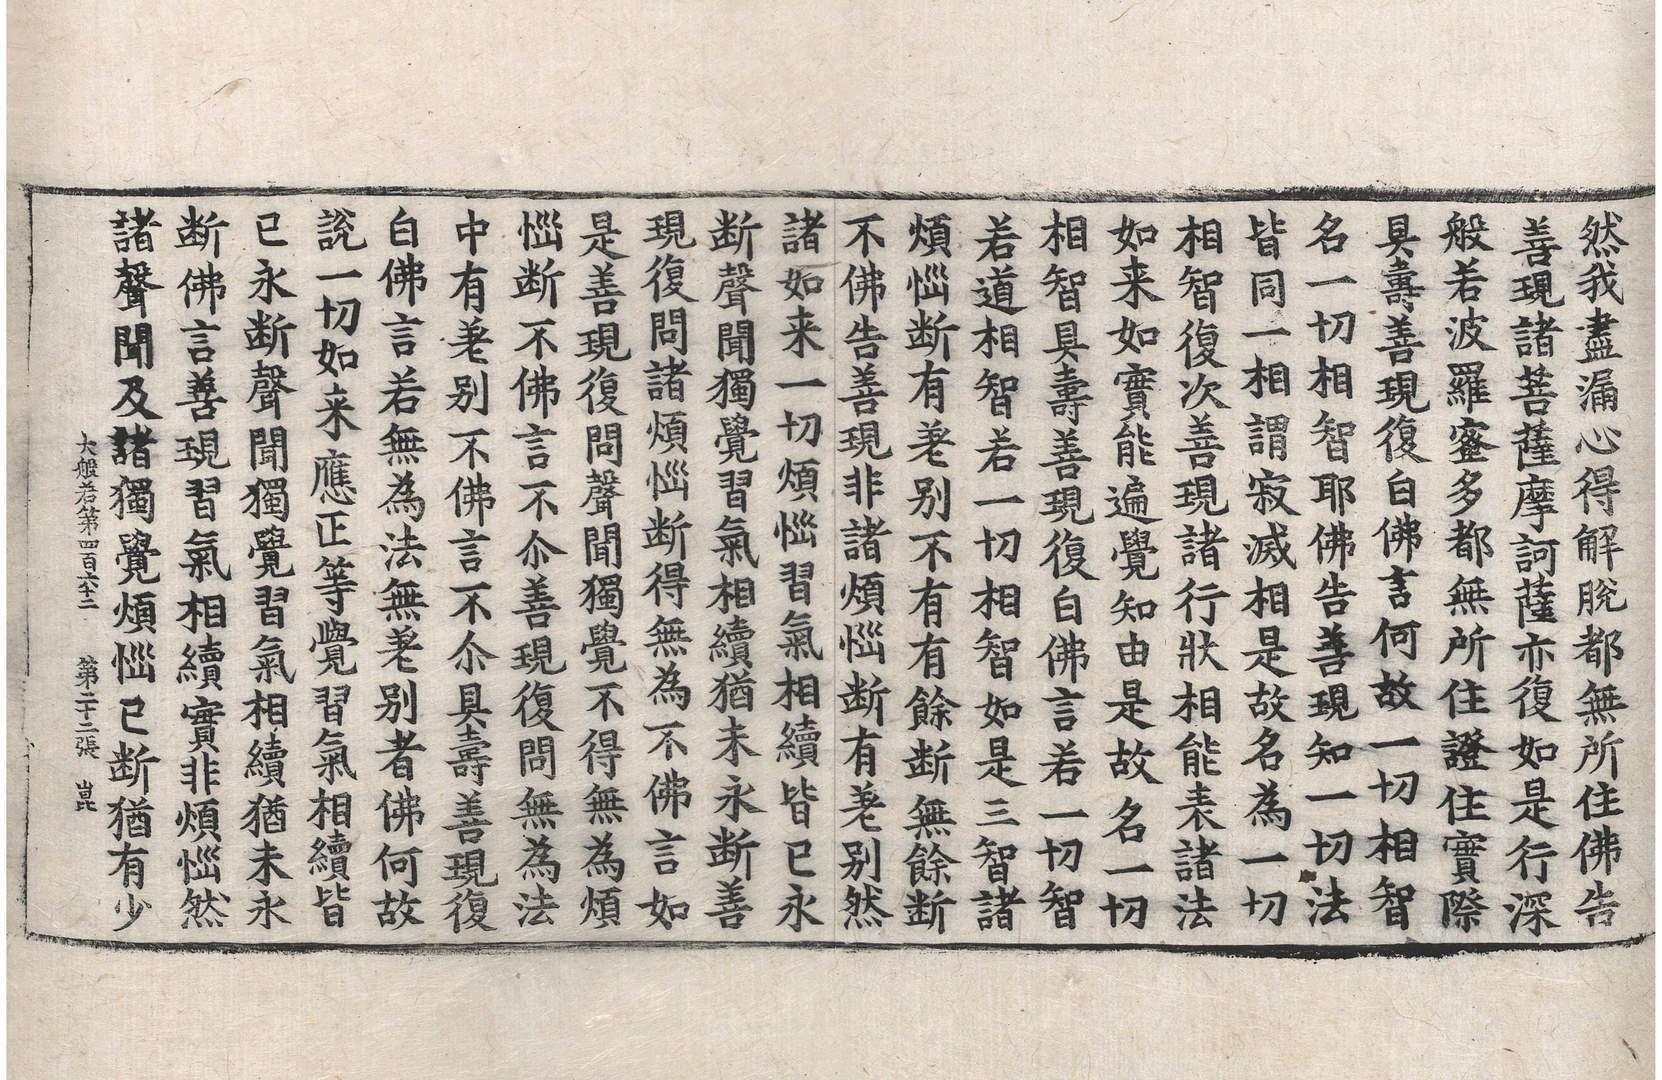 然我盡漏心得解脫都無所住佛告
善現諸菩薩摩訶薩亦復如是行深
般若波羅蜜多都無所住證住實際
具壽善現復白佛言何故一切相智
名一切相智耶佛告善現知一切法
皆同一相謂寂滅相是故名為一切
相智復次善現諸行狀相能表諸法
如来如實能遍覺知由是故名一切
相智具壽善現復白佛言若一切智
若道相智若一切相智如是三智諸
煩惱断有差别不有有餘断無餘断
不佛告善現非諸煩惱断有差别然
諸如来一切煩惱習氣相續皆已永
断聲聞獨覺習氣相續猶未永断善
現復問諸煩惱断得無為不佛言如
是善現復問聲聞獨覺不得無為煩
惱断不佛言不尒善現復問無為法
中有差别不佛言不尒具壽善現復
白佛言若無為法無差别者佛何故
說一切如来應正等覺習氣相續皆
已永断聲聞獨覺習氣相續猶未永
断佛言善現習氣相續實非煩惱然
諸聲聞及諸獨覺煩惱已断猶有少
大般若第四百六十二 第二十二張 崑